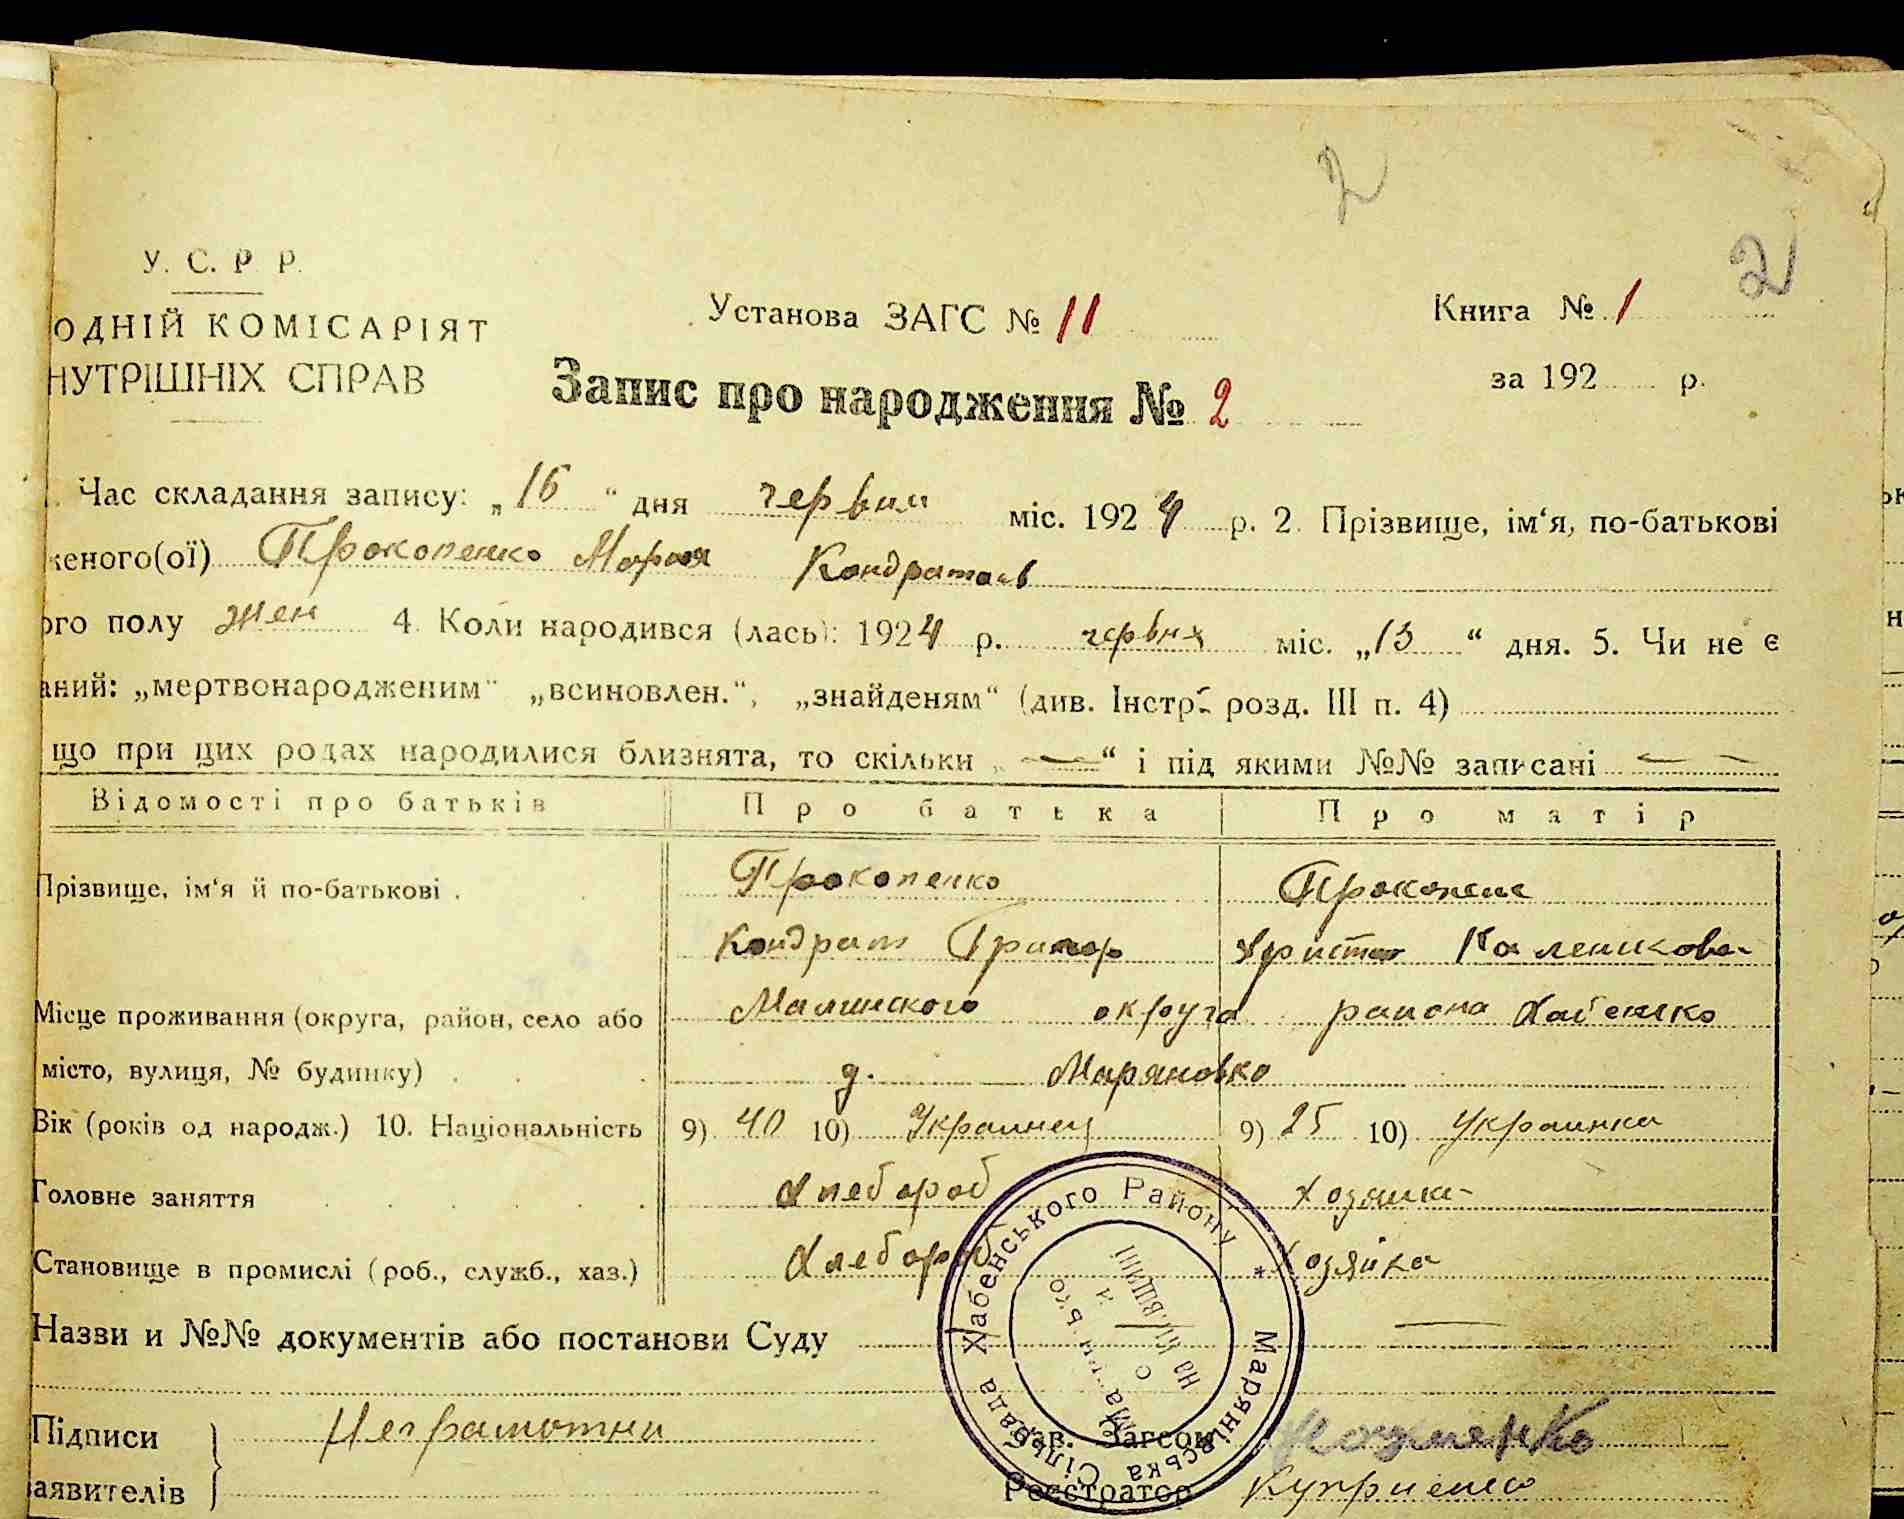 2
2
У. С. Р. Р.
ОДНІЙ КОМІСАРІЯТ
НУТРІШНІХ СПРАВ
Установа ЗАГС № 11
Книга № 1
за 192 р.
Запис про народження № 2
Час складання запису: „16“ дня червня міс. 1924 р. 2. Прізвище, ім‘я, по-батькові
женого(ої) Прокопенко Мария Кондратьев
ого полу жен 4. Коли народився (лась): 1924 р. червня міс. „13“ дня. 5. Чи не є
аний: „мертвонародженим“ „всиновлен.“, „знайденям“ (див. Інстр. розд. III п. 4)
що при цих родах народилися близнята, то скільки „—“ і під якими №№ записані —
Відомості про батьків Про батька Про матір
Прізвище, ім‘я й по-батькові . Прокопенко Прокопенк
Кондрат Григор Христия Каленикова
Місце проживання (округа, район, село або Малинского округа района Хабенско
місто, вулиця, № будинку) . д. Маряновко
Вік (років од народж.) 10. Національність 9) 40 10) Украинец 9) 25 10) Украинка
Головне заняття Хлебороб хозяика
Становище в промислі (роб., служб., хаз.) Хлебороб хозяйка
Назви и №№ документів або постанови Суду —
Підписи Неграмотни
аявителів
Зав. Загсом
Реєстратор Куприенко
Марянівська Сільрада Хабенського Району *
на Київщині